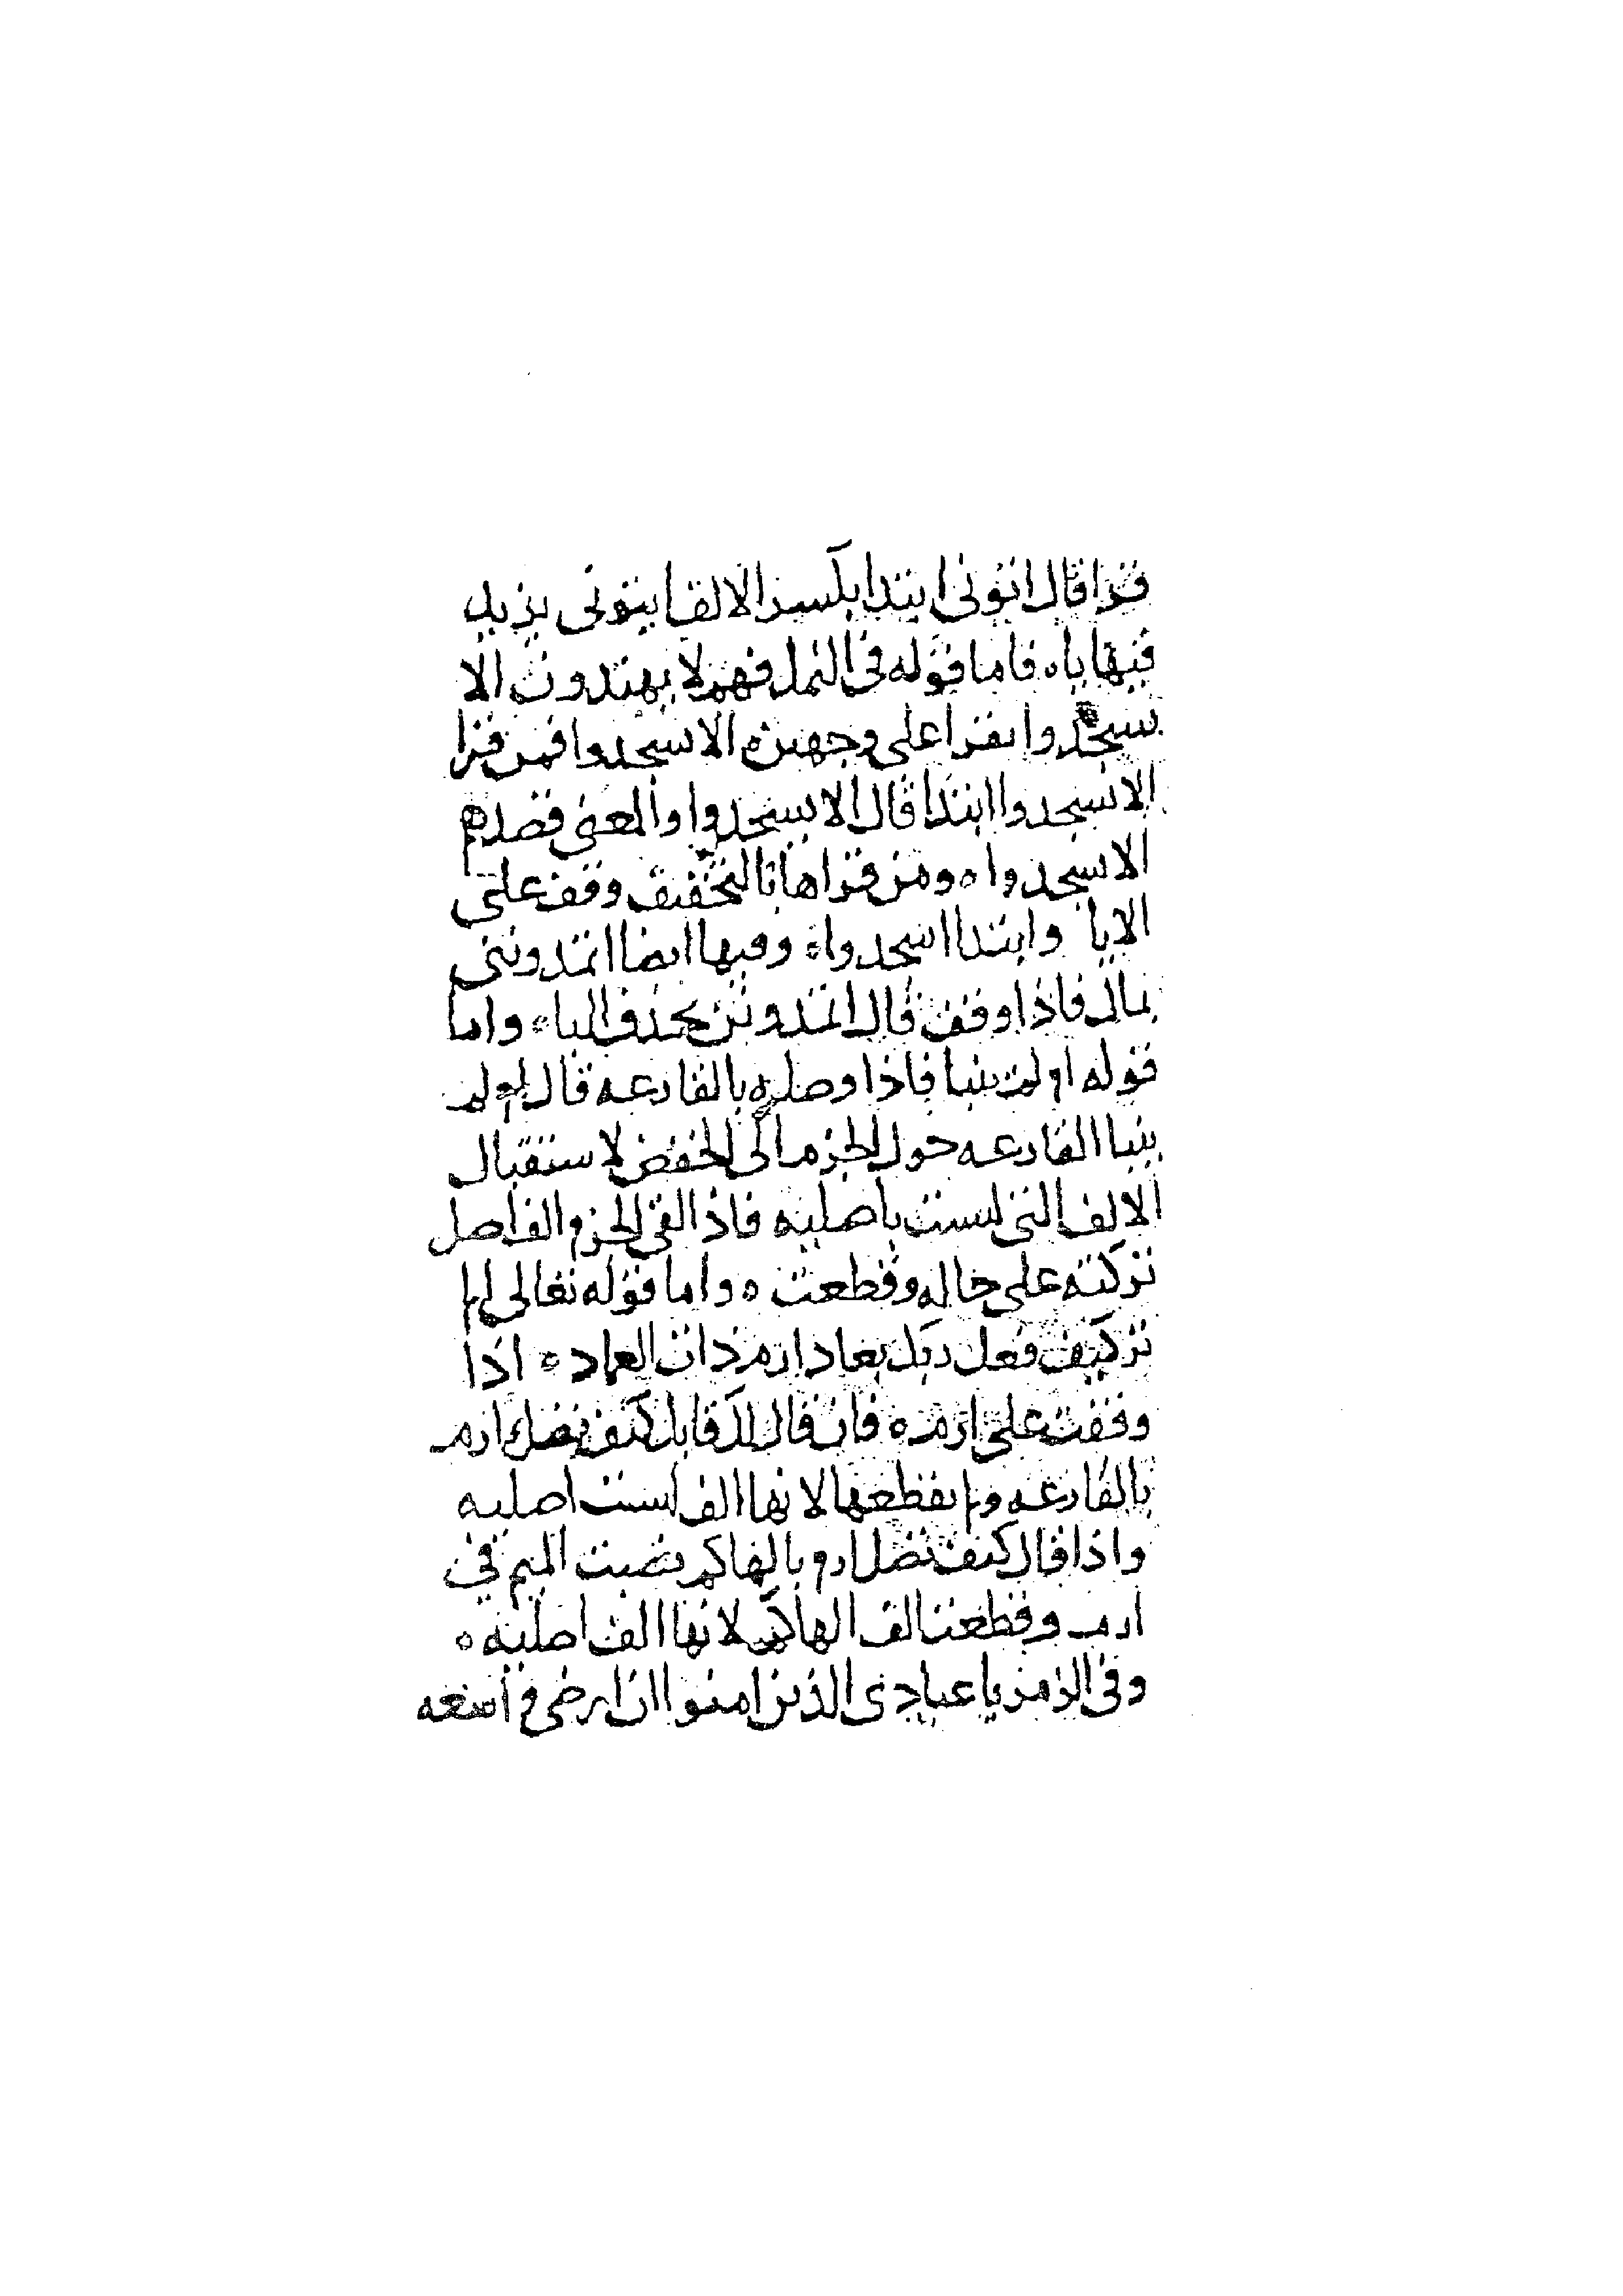 قرا قال اتونى ابتدا بكسر الالف ايتونى يزيد
فيها ياه فاما قوله فى النمل فهم لا يهتدون الا
يسجدوا تقرا على وجهين الا يسجدوا فمن قرا
الا يسجدوا ابتدا قال الا يسجدوا والمعنى فصدهم
الا يسجدواه ومن قراها بالتخفيف وقف على
الايا وابتدا اسجدواه وفيها ايضا اتمدوننى
بمال فاذا وقف قال اتمدونن بحذف الياه واما
قوله ام لم ينبا فاذا وصله بالقارعه قال ام لم
ينبا القارعه حول الجزم الى الخفض لاستقبال
الالف التى ليست باصليه فاذا لقى الجزم الف اصل
تركته على حاله وقطعته واما قوله تعالى الم
تر كيف فعل ربك بعاد ارم ذات العماده اذا
وقفت على ارمه فان قال لك قايل كيف تصل ارم
بالقارعه ولم تقطعها لانها الف ليست اصليه
واذا قال كيف تصل ارم بالهاكم نصبت الميم فى
ارم وقطعت الف الهاكم لانها الف اصليه ه
وفى الزمر يا عبادى الذين امنوا ان ارضى واسعه